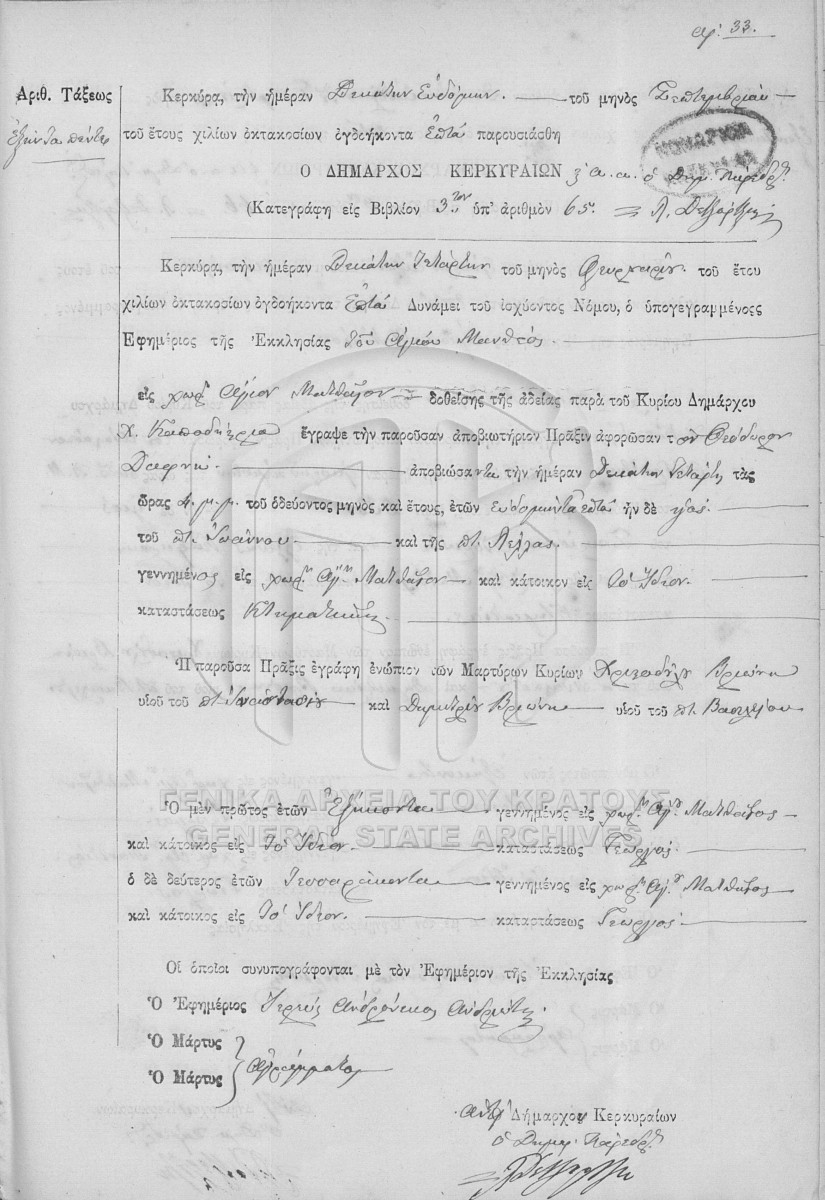 αρ: 33.
Αριθ. Τάξεως
ἑξῆντα πέντε
Κερκύρᾳ, τὴν ἡμέραν Δεκάτην Ἑνδόμην. τοῦ μηνὸς Σεπτεμβρίου
τοῦ ἔτους χιλίων ὀκτακοσίων ὀγδοήκοντα Ἑπτά παρουσιάσθη
Ὁ ΔΗΜΑΡΧΟΣ ΚΕΡΚΥΡΑΙΩΝ ὁ Δημ. Πάρεδρ.
(Κατεγράφη εἰς Βιβλίον 3τον ὑπ' ἀριθμὸν 65.
Κερκύρᾳ, τὴν ἡμέραν Δεκάτην Τετάρτην τοῦ μηνὸς Φευρουαρίου τοῦ ἔτου
χιλίων ὀκτακοσίων ὀγδοήκοντα Ἑπτά Δυνάμει τοῦ ἰσχύοντος Νόμου, ὁ ὑπογεγραμμένος
Ἐφημέριος τῆς Ἐκκλησίας τοῦ Ἁγίου
εἰς χωρ. Ἅγιον Ματθαῖον δοθείσης τῆς ἀδείας παρὰ τοῦ Κυρίου Δημάρχου
Χ. Καποδίστρια ἔγραψε τὴν παροῦσαν ἀποβιωτήριον Πρᾶξιν ἀφορῶσαν τὸν Θεόδωρον
ἀποβιώσαντα τὴν ἡμέραν Δεκάτην Τετάρτη τὰς
ὥρας 4 μ. μ. τοῦ ὁδεύοντος μηνὸς καὶ ἔτους, ἐτῶν ἑνδομῆντα ἑπτά ἦν δὲ υἱὸς
τοῦ πτ. Ἰωάννου καὶ τῆς πτ.
γεννημένος εἰς χωρ. Ἅγ. Ματθαῖον καὶ κάτοικον εἰς Τὸ Ἴδιον.
καταστάσεως Κτηματικῆς
Ἡ παροῦσα Πρᾶξις ἐγράφη ἐνώπιον τῶν Μαρτύρων Κυρίων Χριστοδούλου Βριώνη
υἱοῦ τοῦ πτ. Ἀναστασίου καὶ Δημητρίου Βριώνη υἱοῦ τοῦ πτ. Βασιλείου
Ὁ μὲν πρῶτος ἐτῶν Ἑξήκοντα γεννημένος εἰς χωρ. Ἅγ. Ματθαῖος
καὶ κάτοικος εἰς Τὸ Ἴδιον. καταστάσεως Γεωργός
ὁ δὲ δεύτερος ἐτῶν Τεσσαράκοντα γεννημένος εἰς χωρ. Ἅγ. Ματθαῖος
καὶ κάτοικος εἰς Τὸ Ἴδιον. καταστάσεως Γεωργός
Οἱ ὁποῖοι συνυπογράφονται μὲ τὸν Ἐφημέριον τῆς Ἐκκλησίας
Ὁ Ἐφημέριος Ἱερεύς Ἀνδρόνικος
Ὁ Μάρτυς
Ὁ Μάρτυς Ἀγράμματοι
Δήμαρχος Κερκυραίων
ὁ Δημ. Πάρεδρ.
ΓΕΝΙΚΑ ΑΡΧΕΙΑ ΤΟΥ ΚΡΑΤΟΥΣ
GENERAL STATE ARCHIVES